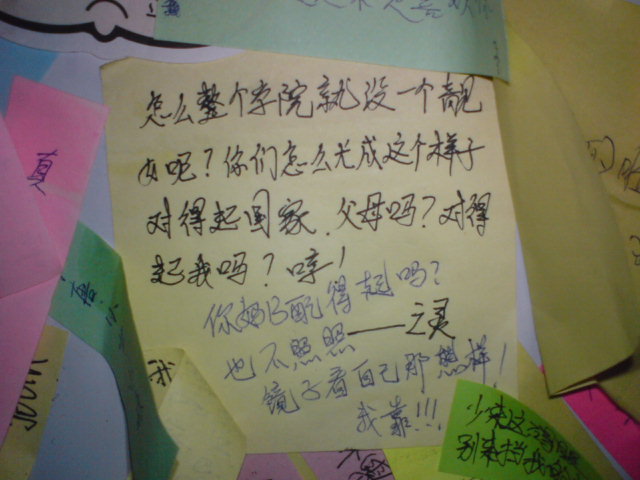 怎么整个学院就没一个靓
女呢？你们怎么长成这个样子
对得起国家、父母吗？对得
起我吗？哼！
你妈B配得起吗？
——之灵
也不照照
镜子看自己那熊样！
我靠!!!
真
我
少来这
别来挡我